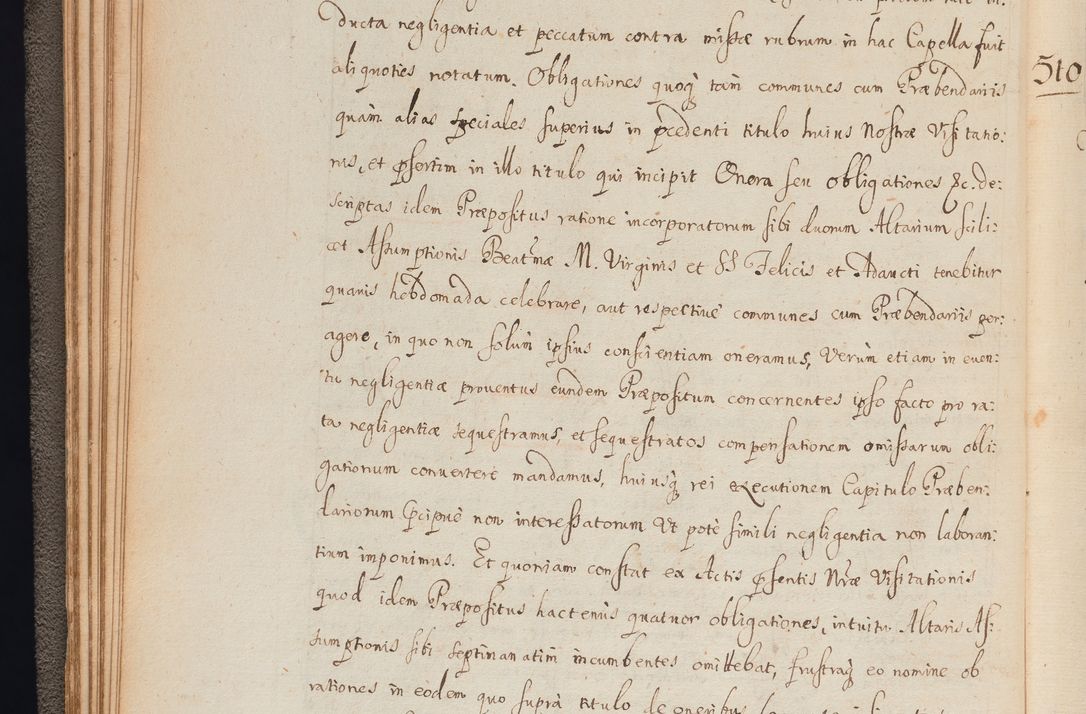 ducta negligentia et peccatum contra missæ rubrum in hac Capella fuit
aliquoties notatum. Obligationes quoq̀ tàm communes cum Præbendariis
quàm alias speciales superius in p̄cedenti titulo huius Nostræ Visitatio:
nis, et p̄sertim in illo titulo qui incipit Onera seu obligationes &c. de:
scriptas idem Præpositus ratione incorporatorum sibi duorum Altarium scili:
cet Assumptionis Beatm̃æ M. Virginis et SS Felicis et Adaucti tenebitur
quavis hebdomada celebrare, aut respectivè communes cum Præbendariis per:
agere, in quo non solùm ipsius conscientiam oneramus, Verùm etiam in even:
tu negligentiæ proventus eundem Præpositum concernentes ipso facto pro ra:
ta negligentiæ sequestramus, et sequestratos compensationem omissarum obli:
gationum convertere mandamus, huiusq̀ rei executionem Capitulo Præben:
dariorum p̄cipuè non interessatorum Ut potè simili negligentia non laboran:
tium imponimus. Et quoniam constat ex Actis p̄sentis Nr̃æ Visitationis
quod idem Præpositus hactenùs quatuor obligationes, intuitu Altaris As:
sumptionis sibi septimanatim incumbentes omittebat, frustraq̀ eo nomine ob
rationes in eodem quo suprà titulo de oneribus
510